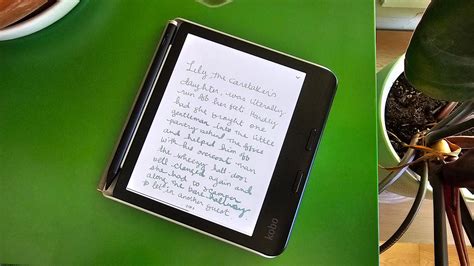 Lily, the caretaker's
daughter, was literally
run off her feet. Hardly
had she brought one
gentleman into the little
pantry behind the office
and helped him off
with his overcoat than
the wheezy hall-door
bell clanged again and
she had to scamper
along the bare hallway
to let in another guest
kobo